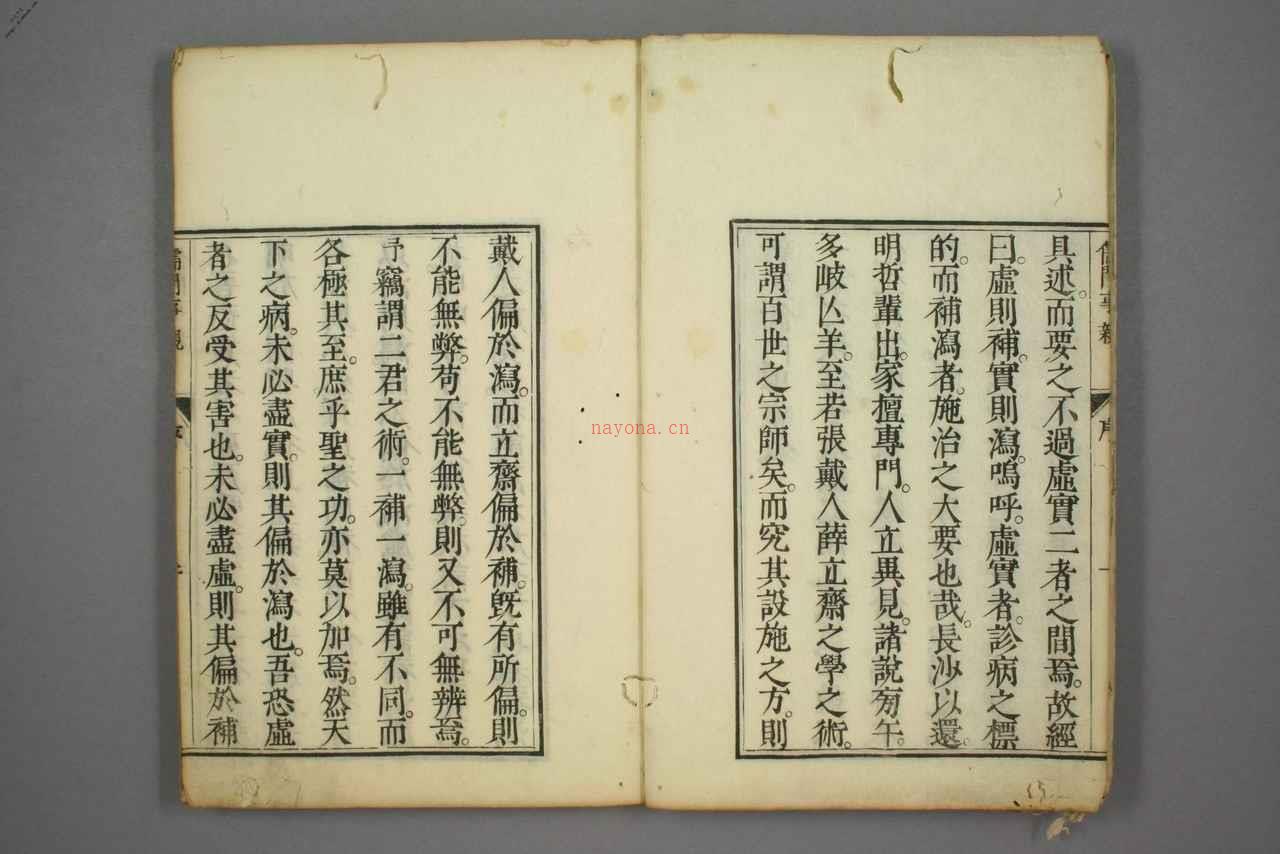 具述。而要之不過虛實二者之間焉。故經
曰。虛則補。實則瀉。嗚呼。虛實者。診病之標
的。而補瀉者。施治之大要也哉。長沙以還。
明哲輩出。家擅專門。人立異見。諸說旁午。
多岐亾羊。至若張戴人薛立齋之學之術。
可謂百世之宗師矣。而究其設施之方。則
戴人偏於瀉。而立齋偏於補。旣有所偏。則
不能無弊。苟不能無弊。則又不可無辨焉。
予竊謂二君之術。一補一瀉。雖有不同。而
各極其至。庶乎聖之功。亦莫以加焉。然天
下之病。未必盡實。則其偏於瀉也。吾恐虛
者之反受其害也。未必盡虛。則其偏於補
儒門事親 序 一
nayona.cn